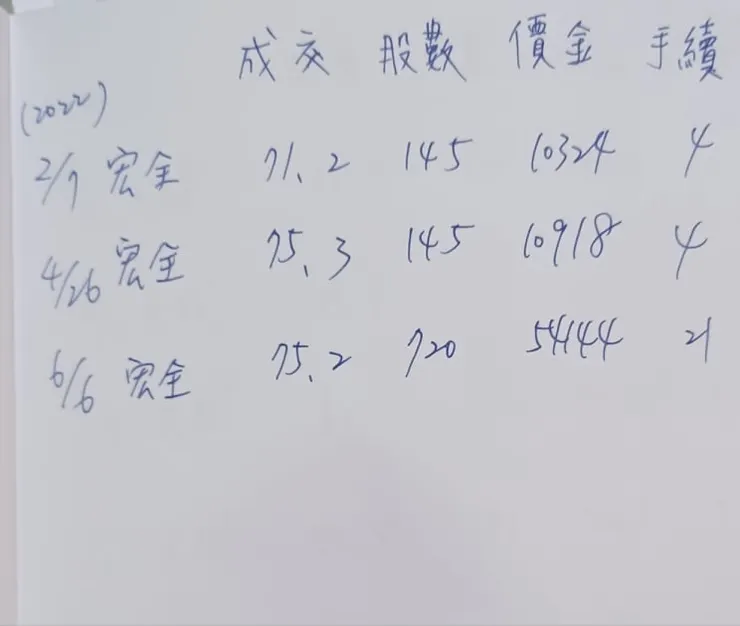 成交 股數 價金 手續
(2022)
2/7 宏全 71.2 145 10324 4
4/26 宏全 75.3 145 10918 4
6/6 宏全 75.2 720 54144 21